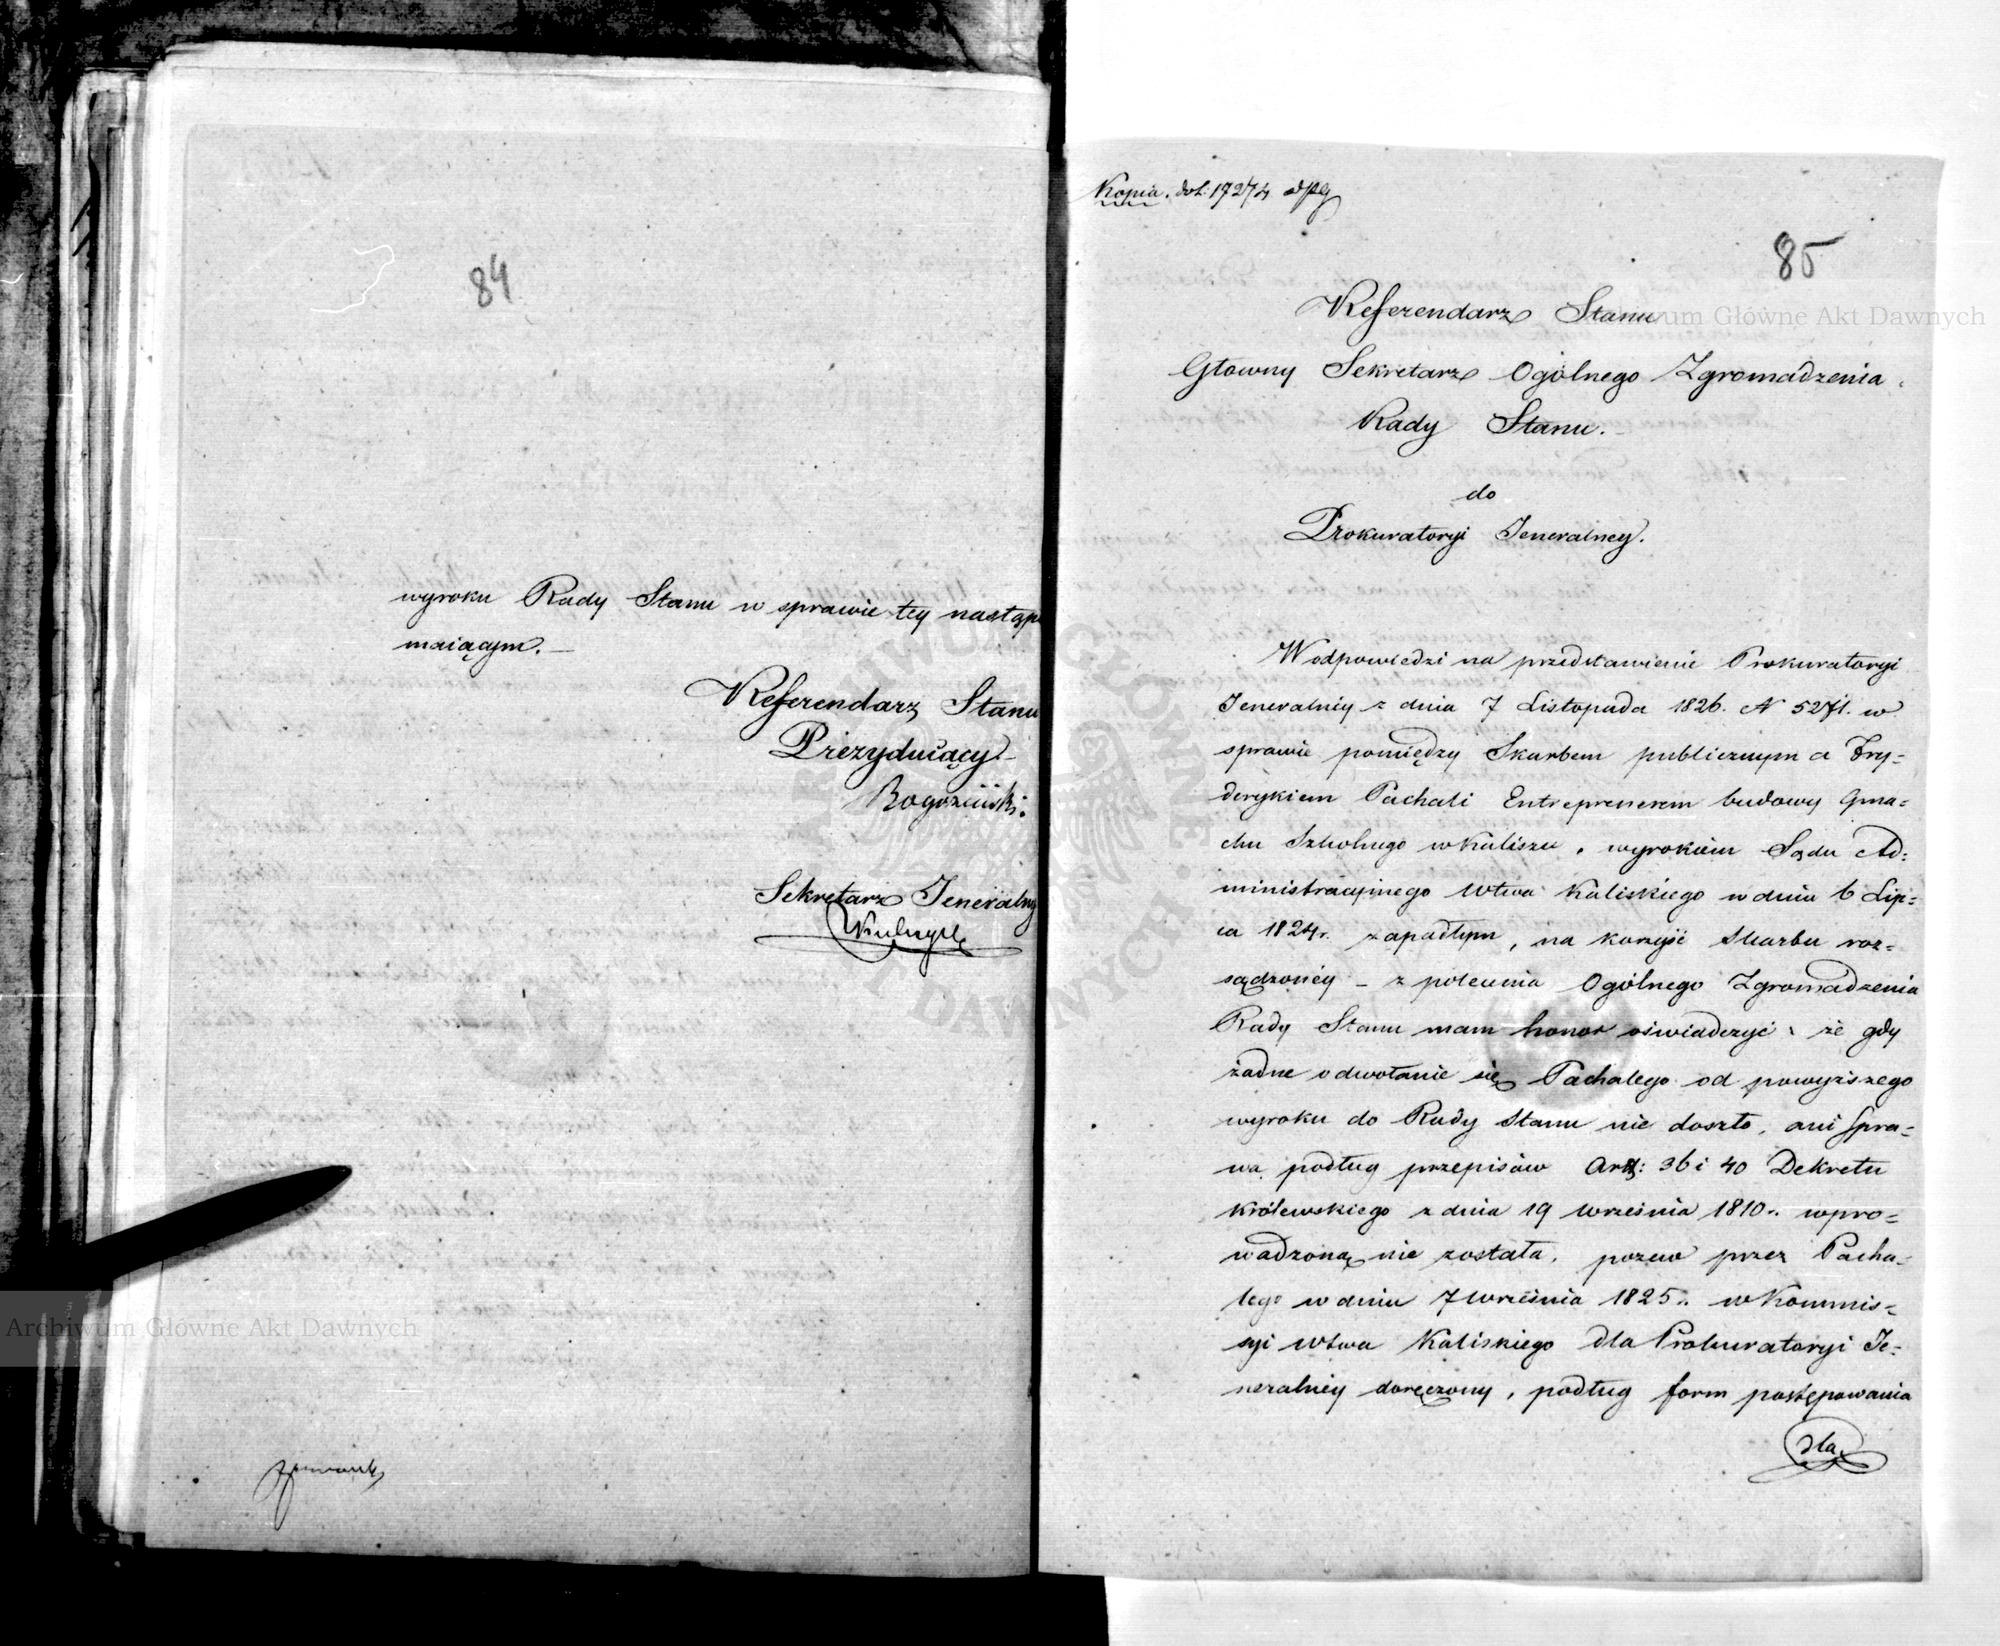 84
wyroku Rady Stanu w sprawie tey nastąp
maiącym. —
Referendarz Stanu
Prezyduiący
Sekretarz Jeneralny
Kopia. do L: 17274
85
Referendarz Stanu
Głowny Sekretarz Ogólnego Zgromadzenia
Rady Stanu.
do
Prokuratoryi Jeneralney.
W odpowiedzi na przedstawienie Prokuratoryi
Jeneralnéy z dnia 7 Listopada 1826. N 5271. w
sprawie pomiędzy Skarbem publicznym a Fry-
derykiem Pachali Entreprenerem budowy Gma-
chu Szkolnego w Kaliszu, wyrokiem Sądu Ad-
ministracyinego Wtwa Kaliskiego w dniu 6 Lip-
ca 1824r. zapadłym, na korzyść Skarbu roz-
sądzonéy — z polecenia Ogólnego Zgromadzenia
Rady Stanu mam honor oświadczyć, że gdy
żadne odwołanie się Pachalego od powyższego
wyroku do Rady Stanu nie doszło, ani Spra-
wa podług przepisów Art: 36 i 40 Dekretu
Królewskiego z dnia 19 Września 1810r. wpro-
wadzoną nie została, pozew przez Pacha-
lego w dniu 7 Września 1825r. w Kommis-
syi Wtwa Kaliskiego dla Prokuratoryi Je-
neralnéy doręczony, podług form postępowania
dla
Archiwum Główne Akt Dawnych